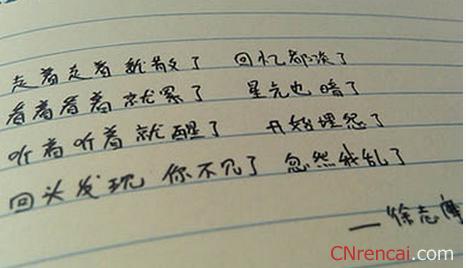 走着走着就散了 回忆都淡了
看着看着就累了 星光也暗了
听着听着就醒了 开始埋怨了
回头发现 你不见了 忽然我乱了
—徐志摩
CNrencai.com